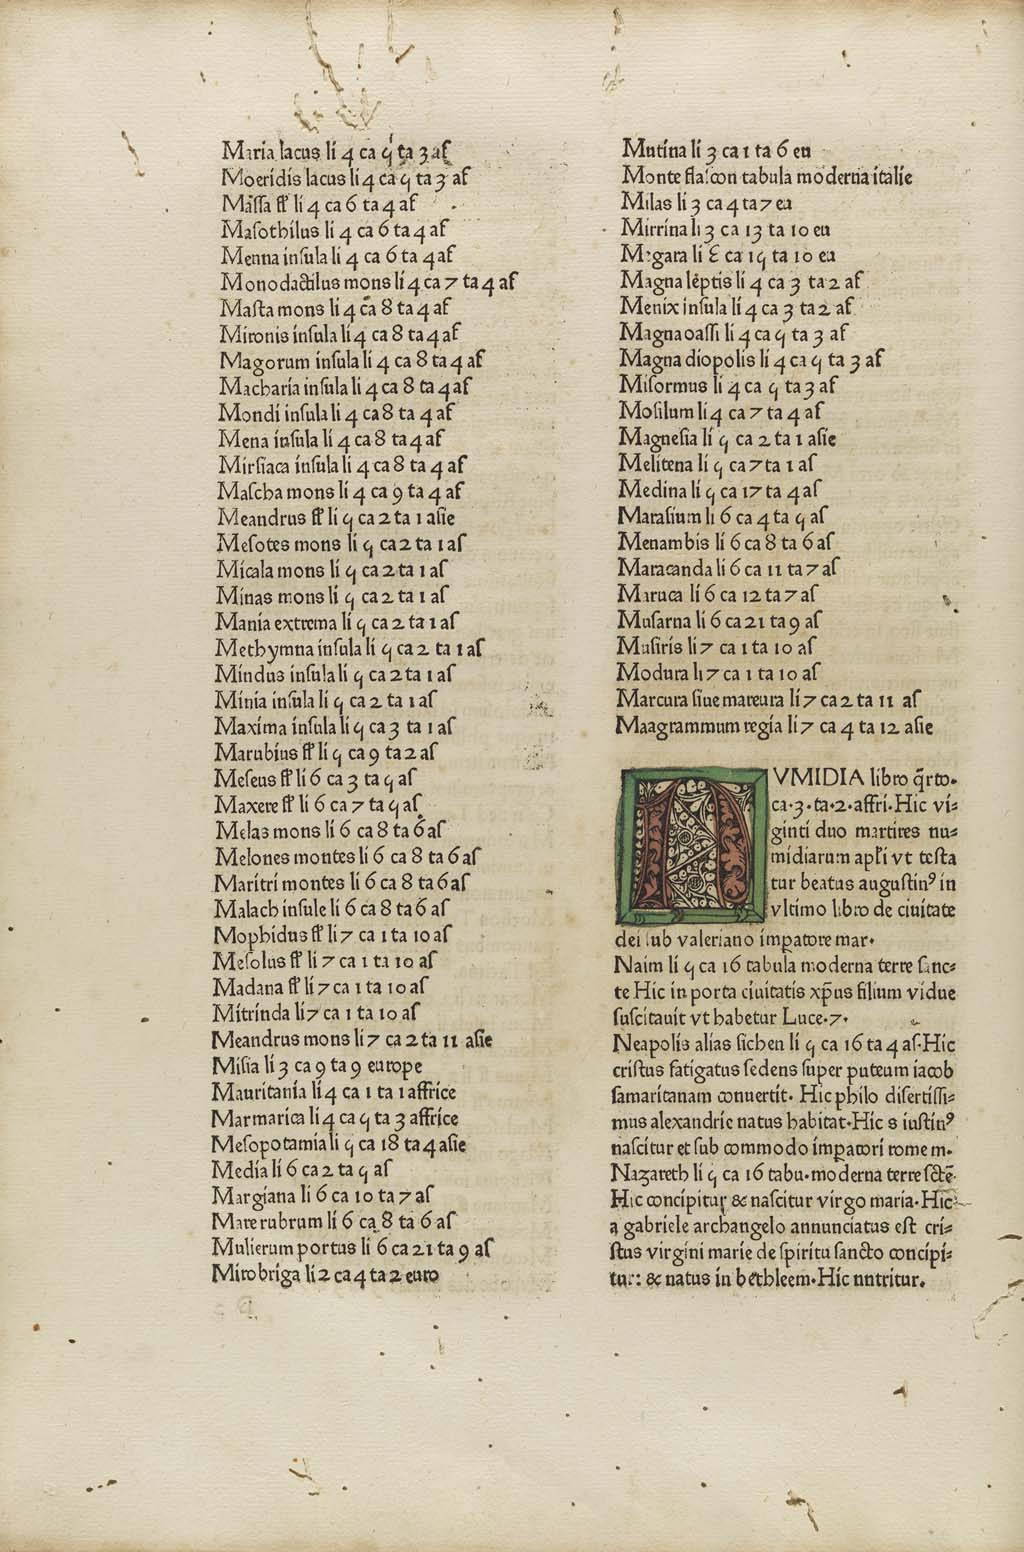 Maria lacus li 4 ca 5 ta 3 af
Moeridis lacus li 4 ca 5 ta 3 af
Massa fl̄ li 4 ca 6 ta 4 af
Masothilus li 4 ca 6 ta 4 af
Menna insula li 4 ca 6 ta 4 af
Monodactilus mons li 4 ca 7 ta 4 af
Masta mons li 4 ca 8 ta 4 af
Mironis insula li 4 ca 8 ta 4 af
Magorum insula li 4 ca 8 ta 4 af
Macharia insula li 4 ca 8 ta 4 af
Mondi insula li 4 ca 8 ta 4 af
Mena insula li 4 ca 8 ta 4 af
Mirsiaca insula li 4 ca 8 ta 4 af
Mascha mons li 4 ca 9 ta 4 af
Meandrus fl̄ li 5 ca 2 ta 1 asie
Mesotes mons li 5 ca 2 ta 1 as
Micala mons li 5 ca 2 ta 1 as
Minas mons li 5 ca 2 ta 1 as
Mania extrema li 5 ca 2 ta 1 as
Methymna insula li 5 ca 2 ta 1 as
Mindus insula li 5 ca 2 ta 1 as
Minia insula li 5 ca 2 ta 1 as
Maxima insula li 5 ca 3 ta 1 as
Marubius fl̄ li 5 ca 9 ta 2 as
Meseus fl̄ li 6 ca 3 ta 5 as
Maxere fl̄ li 6 ca 7 ta 5 as
Melas mons li 6 ca 8 ta 6 as
Melones montes li 6 ca 8 ta 6 as
Maritri montes li 6 ca 8 ta 6 as
Malach insule li 6 ca 8 ta 6 as
Mophidus fl̄ li 7 ca 1 ta 10 as
Mesolus fl̄ li 7 ca 1 ta 10 as
Madana fl̄ li 7 ca 1 ta 10 as
Mitrinda li 7 ca 1 ta 10 as
Meandrus mons li 7 ca 2 ta 11 asie
Misia li 3 ca 9 ta 9 europe
Mauritania li 4 ca 1 ta 1 affrice
Marmarica li 4 ca 5 ta 3 affrice
Mesopotamia li 5 ca 18 ta 4 asie
Media li 6 ca 2 ta 5 as
Margiana li 6 ca 10 ta 7 as
Mare rubrum li 6 ca 8 ta 6 as
Mulierum portus li 6 ca 21 ta 9 as
Mirobriga li 2 ca 4 ta 2 euro
Mutina li 3 ca 1 ta 6 eu
Monte flascon tabula moderna italie
Milas li 3 ca 4 ta 7 eu
Mirrina li 3 ca 13 ta 10 eu
Megara li ca 15 ta 10 eu
Magna leptis li 4 ca 3 ta 2 af
Menix insula li 4 ca 3 ta 2 af
Magna oassi li 4 ca 5 ta 3 af
Magna diopolis li 4 ca 5 ta 3 af
Misormus li 4 ca 5 ta 3 af
Mosilum li 4 ca 7 ta 4 af
Magnesia li 5 ca 2 ta 1 asie
Melitena li 5 ca 7 ta 1 as
Medina li 5 ca 17 ta 4 as
Marasium li 6 ca 4 ta 5 as
Menambis li 6 ca 8 ta 6 as
Maracanda li 6 ca 11 ta 7 as
Maruca li 6 ca 12 ta 7 as
Musarna li 6 ca 21 ta 9 as
Musiris li 7 ca 1 ta 10 as
Modura li 7 ca 1 ta 10 as
Marcura siue mareura li 7 ca 2 ta 11 as
Maagrammum regia li 7 ca 4 ta 12 asie
NVMIDIA libro q̄rto.
ca.3.ta.2.affri.Hic vi=
ginti duo martires nu=
midiarum apl̄i vt testa
tur beatus augustinꝰ in
vltimo libro de ciuitate
dei sub valeriano impatore mar.
Naim li 5 ca 16 tabula moderna terre sanc=
te Hic in porta ciuitatis xp̄us filium vidue
suscitauit vt habetur Luce.7.
Neapolis alias sichen li 5 ca 16 ta 4 as.Hic
cristus fatigatus sedens super puteum iacob
samaritanam conuertit. Hic philo disertissi=
mus alexandrie natus habitat.Hic s iustinꝰ
nascitur et sub commodo impatori rome m.
Nazareth li 5 ca 16 tabu.moderna terre sctē.
Hic concipitur & nascitur virgo maria.Hic
a gabriele archangelo annunciatus est cri=
stus virgini marie de spiritu sancto concipi=
tur: & natus in bethleem.Hic nntritur.